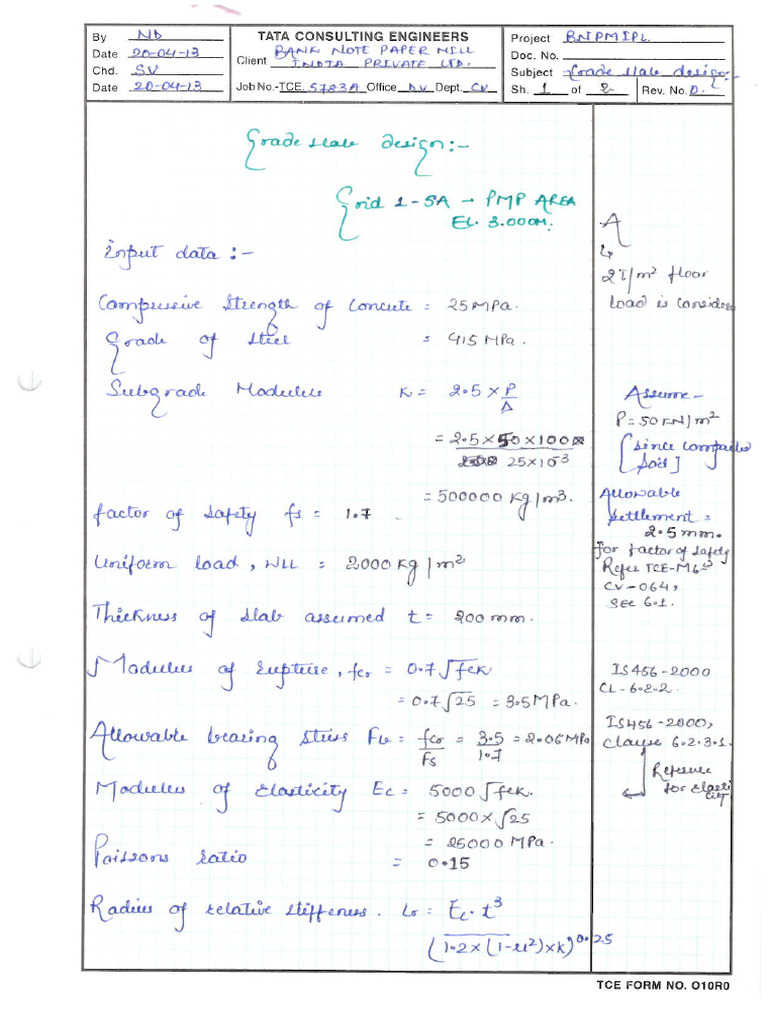 By Nb
Date 20-04-13
Chd. SV
Date 20-04-13
TATA CONSULTING ENGINEERS
Client BANK NOTE PAPER MILL
INDIA PRIVATE LTD.
Job No.-TCE. 5783A Office DV Dept. CV
Project BNPMIPL
Doc. No.
Subject Grade slab design:-
Sh. 1 of 2 Rev. No. 0.
Grade slab design:-
Grid 1-5A → PMP AREA
EL 3.000M.
A
↳
2T/m² floor
load is consider
Input data :-
Compressive Strength of Concrete = 25 MPa.
Grade of Steel = 415 MPa.
Subgrade Modulus K = 2.5 × P/Δ
= 2.5 × 50 × 100
25×10⁻³
= 500000 Kg/m³.
Assume -
P = 50 KN/m²
[since compacted
soil]
Allowable
settlement =
2.5 mm.
factor of safety fs = 1.7
for factor of safety
Refer TCE-M6-
CV-064,
SEC 6.1.
Uniform load, WLL = 2000 Kg/m²
Thickness of slab assumed t = 200 mm.
Modulus of rupture, fcr = 0.7√fck
= 0.7√25 = 3.5 MPa.
IS456-2000
CL-6.2.2.
Allowable bearing stress Fb = fcr/Fs = 3.5/1.7 = 2.06 MPa
IS456-2000,
Clause 6.2.3.1.
Reference
for Elasti
city
Modulus of Elasticity Ec = 5000 √fck.
= 5000 × √25
= 25000 MPa.
Poissons ratio = 0.15
Radius of relative stiffness. Lr = Ec.t³
(12×(1-μ²)×k)^0.25
TCE FORM NO. O10R0